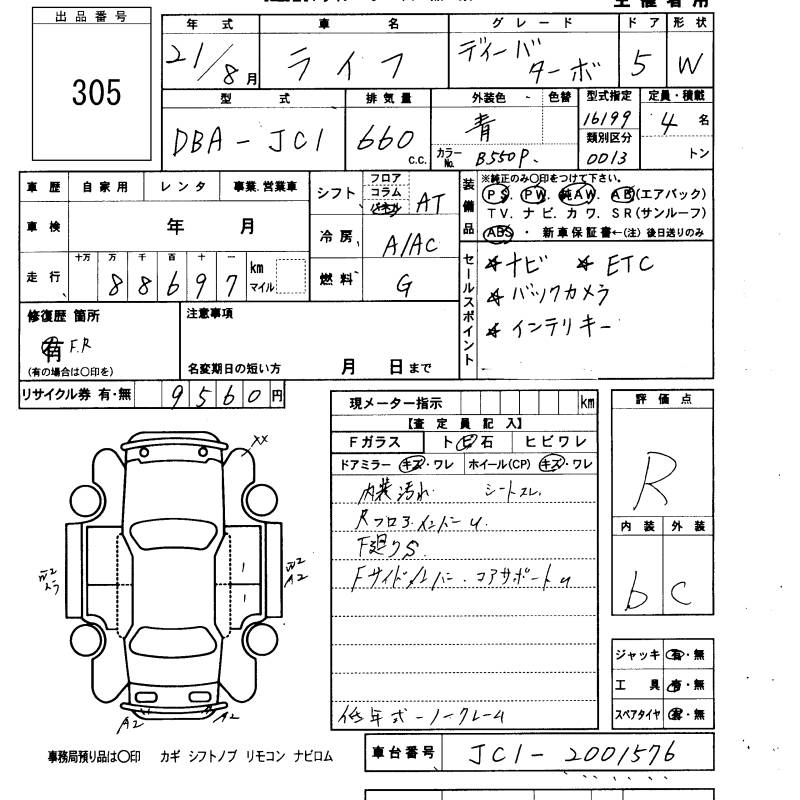 出品番号
305
年式 車名 グレード ドア 形状
21/8月 ライフ ディーバ ターボ 5 W
型式 排気量 外装色 色替 型式指定 定員・積載
DBA-JC1 660 c.c. 青 16199 4名
カラーNo. B550P. 類別区分 0013 トン
車歴 自家用 レンタ 事業.営業車
シフト フロア コラム パネル AT
装備品 ※純正のみ〇印をつけて下さい。
PS. PW. 純AW. AB(エアバック)
TV. ナビ. カワ. SR(サンルーフ)
ABS ・ 新車保証書←(注) 後日送りのみ
車検 年 月
冷房 A/AC
走行 十万 万 千 百 十 一
88697 km マイル
燃料 G
セールスポイント
☆ナビ ☆ETC
☆バックカメラ
☆インテリキー
修復歴 箇所
有 F.R
(有の場合は〇印を)
注意事項
名変期日の短い方 月 日まで
リサイクル券 有・無 9560円
現メーター指示 km
【査定員記入】
Fガラス ト ビ 石 ヒビワレ
ドアミラー キズ・ワレ ホイール(CP) キズ・ワレ
内装汚れ シートスレ.
Rフロア.インパー u.
F廻りS.
Fサイドメンバー.コアサポートu
低年式-ノークレーム
評価点
R
内装 外装
b C
ジャッキ 有・無
工具 有・無
スペアタイヤ 有・無
XX
W2
A2
A2
A2
事務局預り品は〇印 カギ シフトノブ リモコン ナビロム
車台番号 JC1-2001576